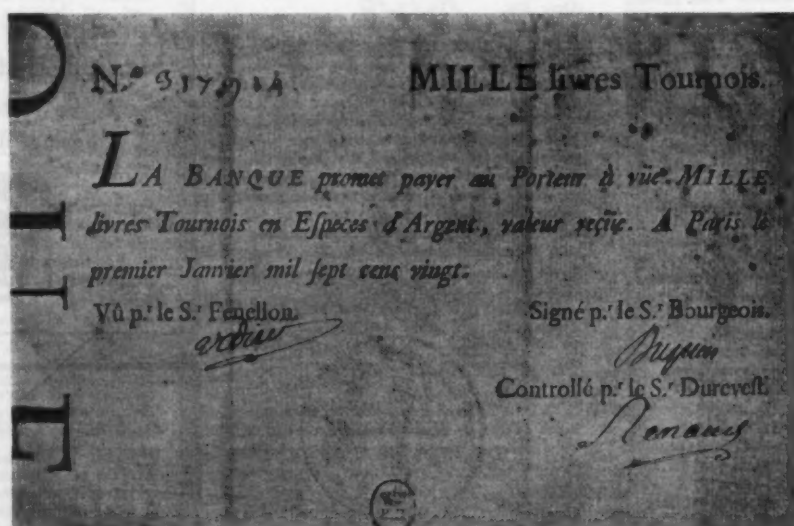 N.º MILLE livres Tournois.
LA BANQUE promet payer au Porteur à vüe MILLE
livres Tournois en Eſpeces d'Argent, valeur reçüe. A Paris le
premier Janvier mil ſept cens vingt.
Vû p.ʳ le S.ʳ Fenellon. Signé p.ʳ le S.ʳ Bourgeois.
Controllé p.ʳ le S.ʳ Dureveſt.